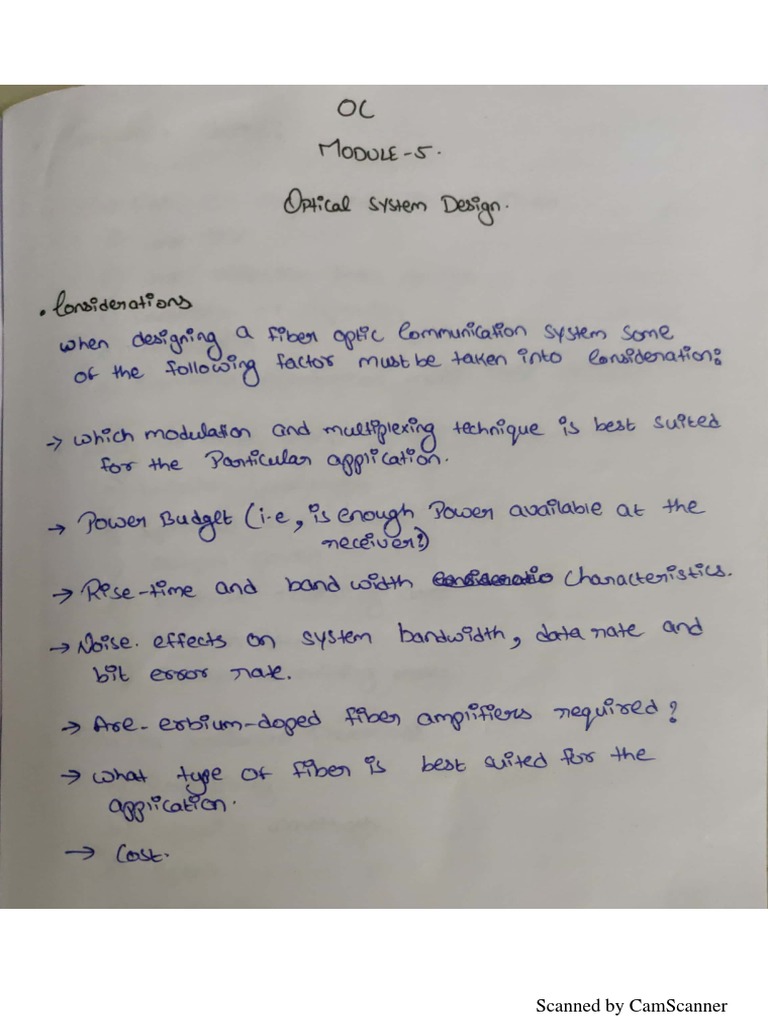 OC
MODULE-5.
Optical System Design.
• Considerations
when designing a fiber optic communication system some
of the following factor must be taken into consideration:
→ which modulation and multiplexing technique is best suited
for the Particular application.
→ Power Budget (i.e, is enough Power available at the
receiver?)
→ Rise-time and band width consideratio characteristics.
→ Noise. effects on system bandwidth, data rate and
bit error rate.
→ Are- erbium-doped fiber amplifiers required?
→ what type of fiber is best suited for the
application.
→ Cost.
Scanned by CamScanner